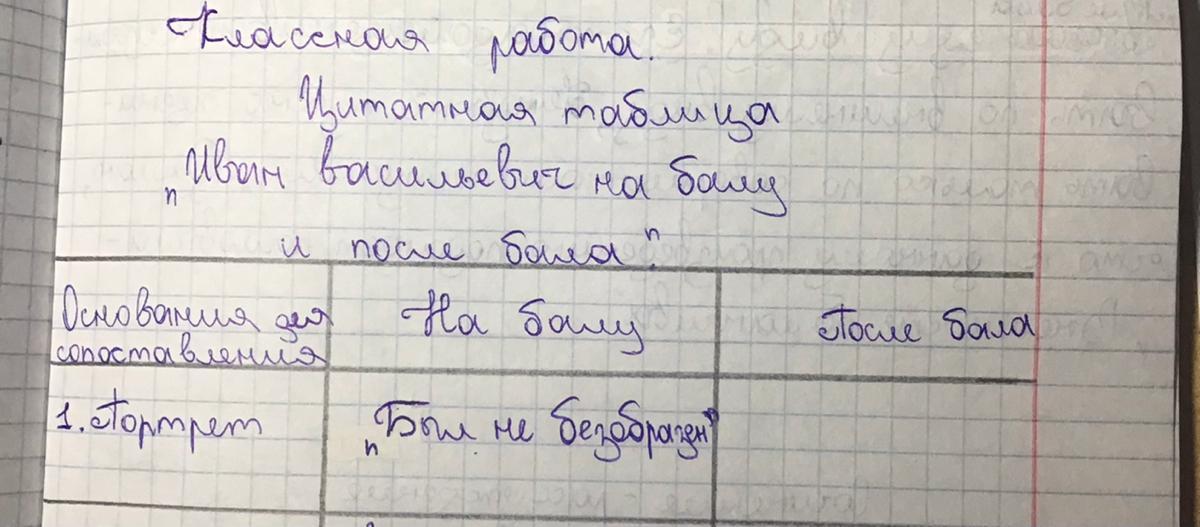 Классная работа.
Цитатная таблица
„Иван васильевич на балу
и после бала".
Основания для
сопоставления
На балу
После бала
1. Портрет
„Был не безобразен"